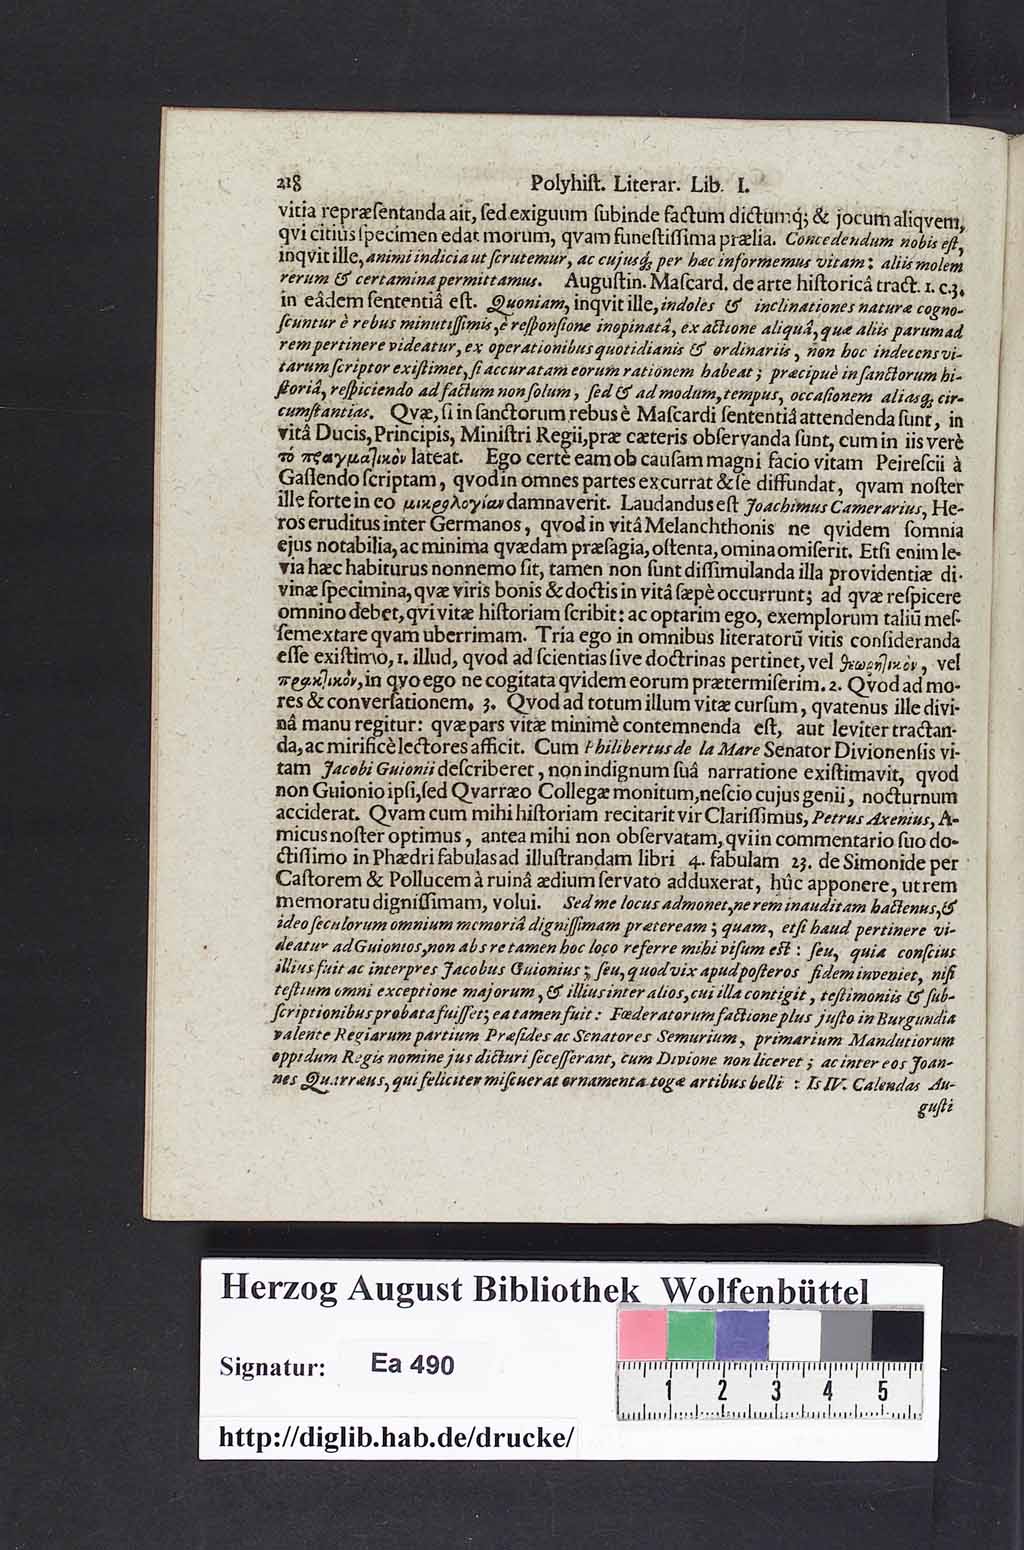 218 Polyhiſt. Literar. Lib. I.
vitia repræſentanda ait, ſed exiguum ſubinde factum dictumq́; & jocum aliqvem,
qvi citiùs ſpecimen edat morum, qvam funeſtiſſima prælia. Concedendum nobis eſt,
inqvit ille, animi indicia ut ſcrutemur, ac cujusq́; per hæc informemus vitam: aliis molem
rerum & certamina permittamus. Auguſtin. Maſcard. de arte hiſtoricâ tract. 1. c. 3.
in eâdem ſententiâ eſt. Quoniam, inqvit ille, indoles & inclinationes naturæ cogno-
ſcuntur è rebus minutiſſimis, è reſponſione inopinatâ, ex actione aliquâ, quæ aliis parum ad
rem pertinere videatur, ex operationibus quotidianis & ordinariis, non hoc indecens vi-
tarum ſcriptor exiſtimet, ſi accuratam eorum rationem habeat; præcipuè in ſanctorum hi-
ſtoriâ, reſpiciendo ad factum non ſolum, ſed & ad modum, tempus, occaſionem aliasq́; cir-
cumſtantias. Qvæ, ſi in ſanctorum rebus è Maſcardi ſententiâ attendenda ſunt, in
vitâ Ducis, Principis, Miniſtri Regii, præ cæteris obſervanda ſunt, cum in iis verè
τὸ πραγμαικὸν lateat. Ego certè eam ob cauſam magni facio vitam Peireſcii à
Gaſſendo ſcriptam, qvod in omnes partes excurrat & ſe diffundat, qvam noſter
ille forte in eo μικρολογίαν damnaverit. Laudandus eſt Joachimus Camerarius, He-
ros eruditus inter Germanos, qvod in vitâ Melanchthonis ne qvidem ſomnia
ejus notabilia, ac minima qvædam præſagia, oſtenta, omina omiſerit. Etſi enim le-
via hæc habiturus nonnemo ſit, tamen non ſunt diſſimulanda illa providentiæ di-
vinæ ſpecimina, qvæ viris bonis & doctis in vitâ ſæpè occurrunt; ad qvæ reſpicere
omnino debet, qvi vitæ hiſtoriam ſcribit: ac optarim ego, exemplorum taliũ meſ-
ſem extare qvam uberrimam. Tria ego in omnibus literatorũ vitis conſideranda
eſſe exiſtimo, 1. illud, qvod ad ſcientias ſive doctrinas pertinet, vel θεωρητικὸν, vel
πρακτικὸν, in qvo ego ne cogitata qvidem eorum prætermiſerim. 2. Qvod ad mo-
res & converſationem. 3. Qvod ad totum illum vitæ curſum, qvatenus ille divi-
nâ manu regitur: qvæ pars vitæ minimè contemnenda eſt, aut leviter tractan-
da, ac mirificè lectores afficit. Cum Philibertus de la Mare Senator Divionenſis vi-
tam Jacobi Guionii deſcriberet, non indignum ſuâ narratione exiſtimavit, qvod
non Guionio ipſi, ſed Qvarræo Collegæ monitum, neſcio cujus genii, nocturnum
acciderat. Qvam cum mihi hiſtoriam recitarit vir Clariſſimus, Petrus Axenius, A-
micus noſter optimus, antea mihi non obſervatam, qvi in commentario ſuo do-
ctiſſimo in Phædri fabulas ad illuſtrandam libri 4. fabulam 23. de Simonide per
Caſtorem & Pollucem à ruinâ ædium ſervato adduxerat, hûc apponere, ut rem
memoratu digniſſimam, volui. Sed me locus admonet, ne rem inauditam hactenus, &
ideo ſeculorum omnium memoriâ digniſſimam præteream; quam, etſi haud pertinere vi-
deatur ad Guionios, non abs re tamen hoc loco referre mihi viſum eſt: ſeu, quia conſcius
illius fuit ac interpres Jacobus Guionius; ſeu, quod vix apud poſteros fidem inveniet, niſi
teſtium omni exceptione majorum, & illius inter alios, cui illa contigit, teſtimoniis & ſub-
ſcriptionibus probata fuiſſet; ea tamen fuit: Fœderatorum factione plus juſto in Burgundia
valente Regiarum partium Præſides ac Senatores Semurium, primarium Mandutiorum
oppidum Regis nomine jus dicturi ſeceſſerant, cum Divione non liceret; ac inter eos Joan-
nes Quarræus, qui feliciter miſcuerat ornamenta togæ artibus belli: Is IV. Calendas Au-
guſti
Herzog August Bibliothek Wolfenbüttel
Signatur: Ea 490
1 2 3 4 5
http://diglib.hab.de/drucke/